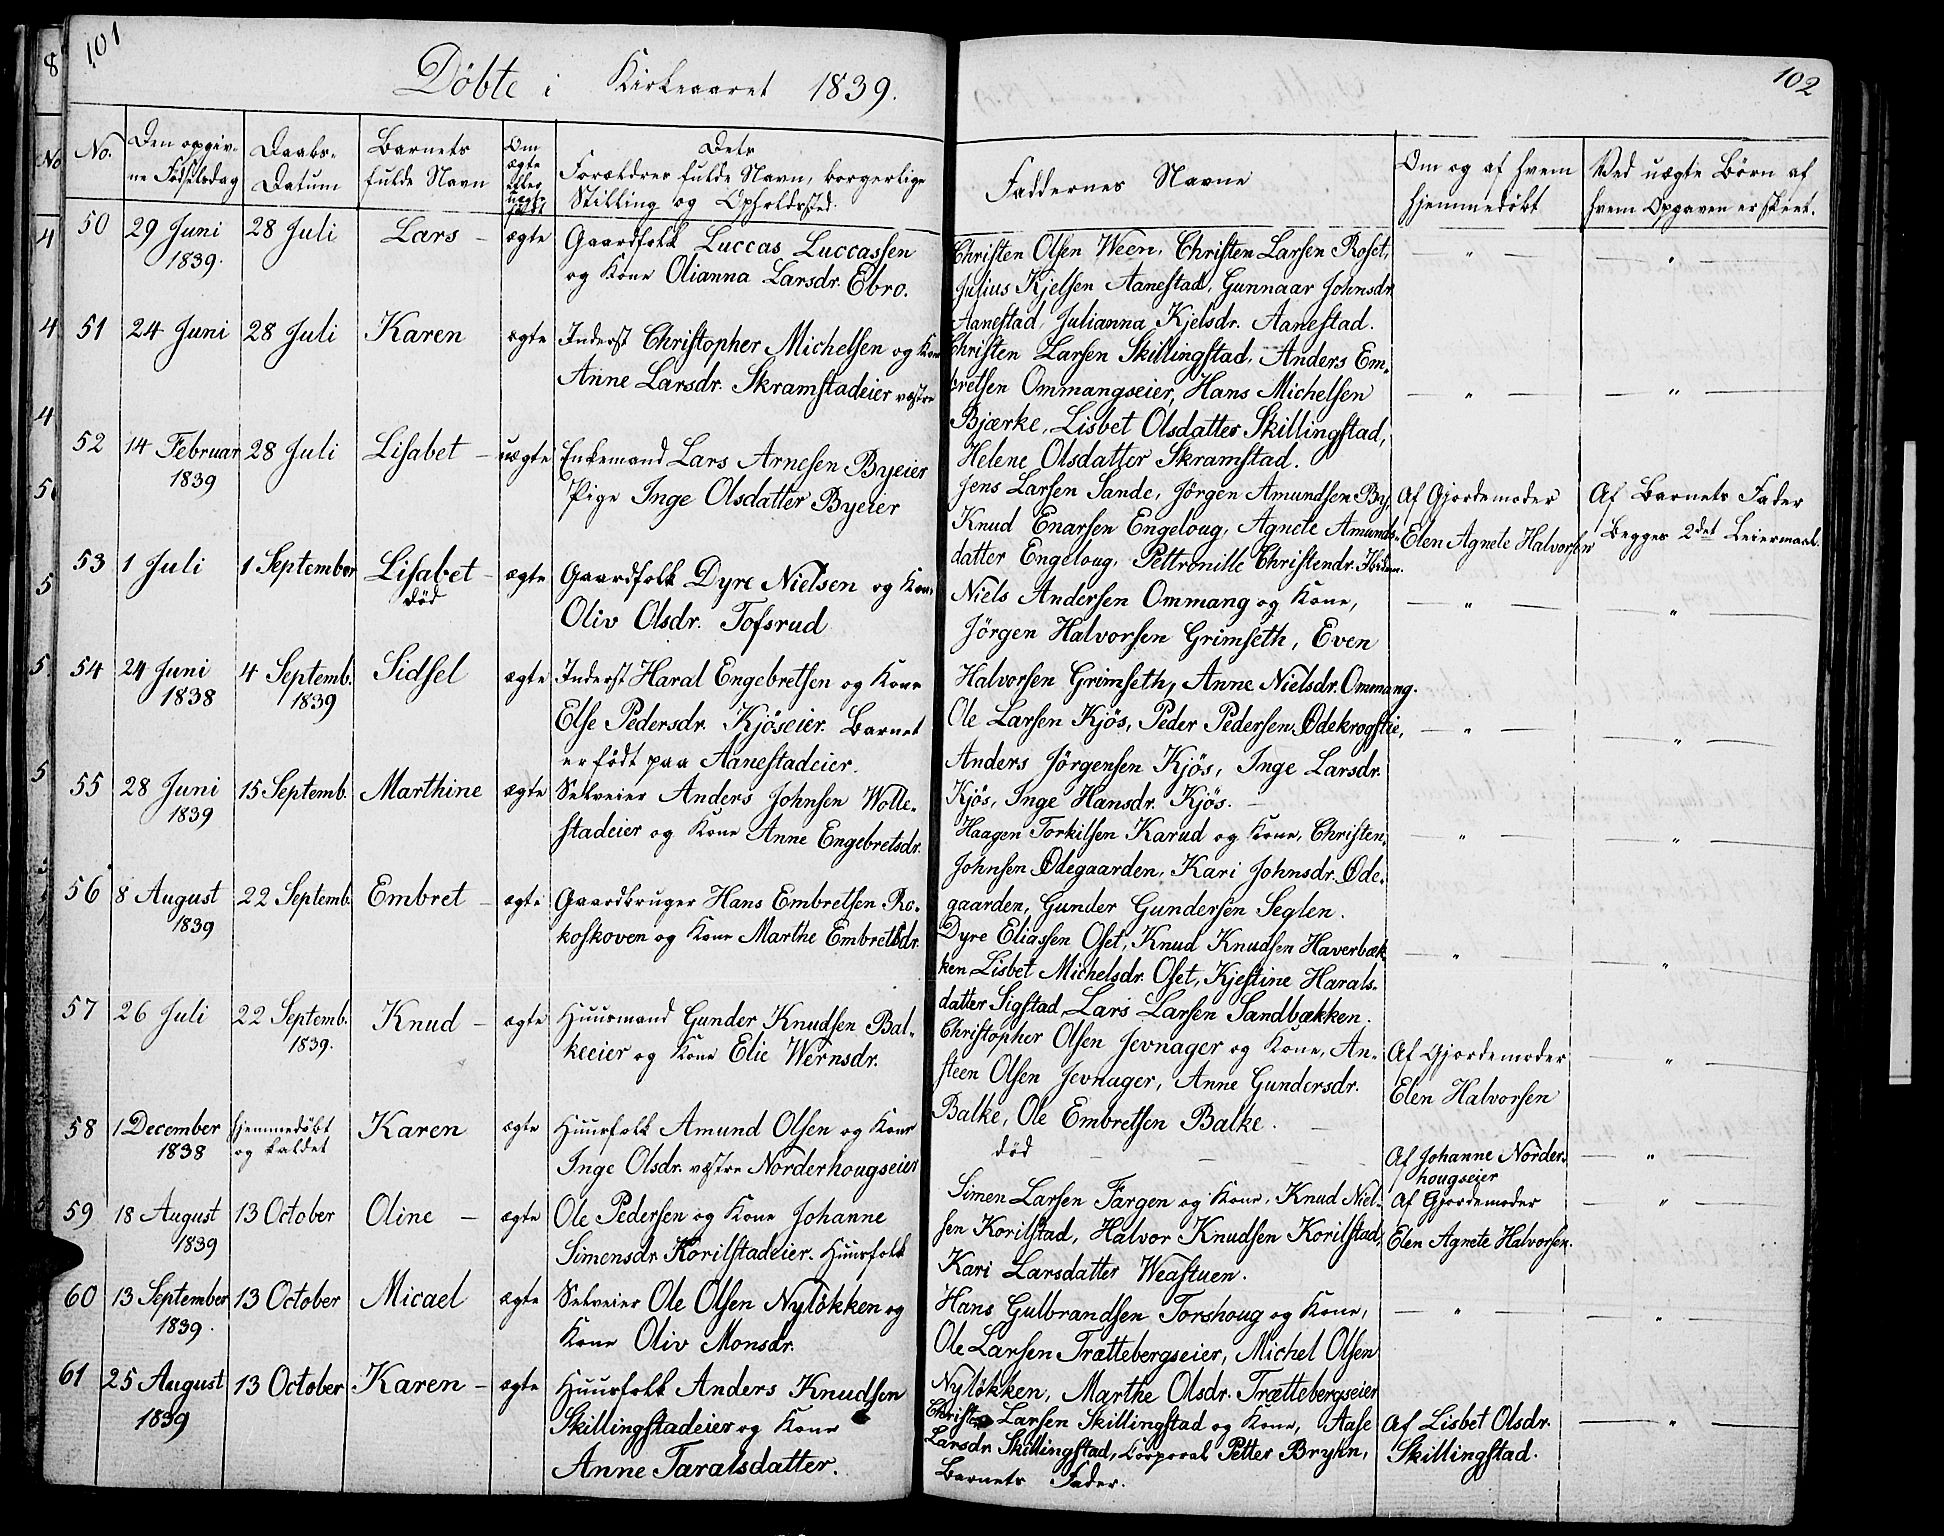 101
Döbte i Kirkeaaret 1839.
No.
Den opgiv-
ne Födselsdag
Daabs-
Datum
Barnets
fulde Navn
Om
ægte
eller
uægte
födt
Dets
Forældres fulde Navn, borgerlige
Stilling og Opholdssted.
50 29 Juni 28 Juli Lars – ægte Gaardfolk Luccas Luccassen
1839. og Kone Olianna Larsdr. Ebro.
51 24 Juni 28 Juli Karen ægte Inderst Christopher Michelsen og Kone
Anne Larsdr. Skramstadeier vestre
52 14 Februar 28 Juli Lisabet – uægte Enkemand Lars Arnesen Byeier
1839 Pige Inge Olsdatter Byeier
53 1 Juli 1 September Lisabet – ægte Gaardfolk Dyre Nielsen og Kone
död Oliv Olsdr. Tofsrud
54 24 Juni 4 Septemb. Sidsel ægte Inderst Haral Engebretsen og Kone
1838 1839 Else Pedersdr. Kjöseier. Barnet
er födt paa Aanestadeier.
55 28 Juni 15 Septemb. Marthine ægte Selveier Anders Johnsen Wolle-
1839 stadeier og Kone Anne Engebretsdr.
56 8 August 22 Septemb. Embret – ægte Gaardbruger Hans Embretsen Ro-
1839 koskoven og Kone Marthe Embretsdr.
57 26 Juli 22 Septemb. Knud – ægte Huusmand Gunder Knudsen Bal-
1839. keeier og Kone Elie Wernsdr.
58 1 December hjemmedöbt Karen ægte Huusfolk Amund Olsen og Kone
1838 og kaldet Inge Olsdr. vestre Norderhougseier
59 18 August 13 October Oline – ægte Ole Pedersen og Kone Johanne
1839 Simensdr. Korilstadeier. Huusfolk
60 13 September 13 October Micael ægte Selveier Ole Olsen Nylökken og
1839. Kone Oliv Monsdr.
61 25 August 13 October Karen – ægte Huusfolk Anders Knudsen
1839 Skillingstadeier og Kone
Anne Taralsdatter.
102
Faddernes Navne
Om og af hvem
hjemmedöbt
Ved uægte Börn af
hvem Opgaven er skeet.
Christen Olsen Ween, Christen Larsen Roset,
Julius Kjelsen Aanestad, Gunnaar Johnsdr.
Aanestad, Julianna Kjelsdr. Aanestad.
Christen Larsen Skillingstad, Anders Em-
bretsen Ommangseier, Hans Michelsen
Bjærke, Lisbet Olsdatter Skillingstad,
Helene Olsdatter Skramstad.
Jens Larsen Sande, Jörgen Amundsen By, Af Gjordemoder Af Barnets Fader
Knud Enarsen Engeloug, Agnete Amunds- Elen Agnete Halvorsen Begges 2det Leiermaal.
datter Engeloug, Pettronille Christendr. Ibidem.
Niels Andersen Ommang og Kone,
Jörgen Halvorsen Grimseth, Even
Halvorsen Grimseth, Anne Nielsdr. Ommang.
Ole Larsen Kjös, Peder Pedersen Ödekrogstie,
Anders Jörgensen Kjös, Inge Larsdr.
Kjös, Inge Hansdr. Kjös.
Haagen Torkilsen Karud og Kone, Christen
Johnsen Ödegaarden, Kari Johnsdr. Öde-
gaarden, Gunder Gundersen Seglen.
Dyre Eliassen Oset, Knud Knudsen Haverbæk-
ken Lisbet Michelsdr. Oset, Kjestine Harals-
datter Sigstad, Lars Larsen Sandbækken.
Christopher Olsen Jevnager og Kone, An- Af Gjordemoder
steen Olsen Jevnager, Anne Gundersdr. Elen Halvorsen
Balke, Ole Embretsen Balke.
död Af Johanne Norder-
hougseier
Simen Larsen Fargen og Kone, Knud Niel- Af Gjordemoder
sen Korilstad, Halvor Knudsen Korilstad, Elen Agnete Halvorsen.
Kari Larsdatter Weastuen.
Hans Gulbrandsen Torshoug og Kone,
Ole Larsen Trættebergseier, Michel Olsen
Nylökken, Marthe Olsdr. Trættebergseier
Christen Larsen Skillingstad og Kone, Aase Af Lisbet Olsdr.
Larsdr. Skillingstad, Corporal Petter Bryhn, Skillingstad.
Barnets Fader.